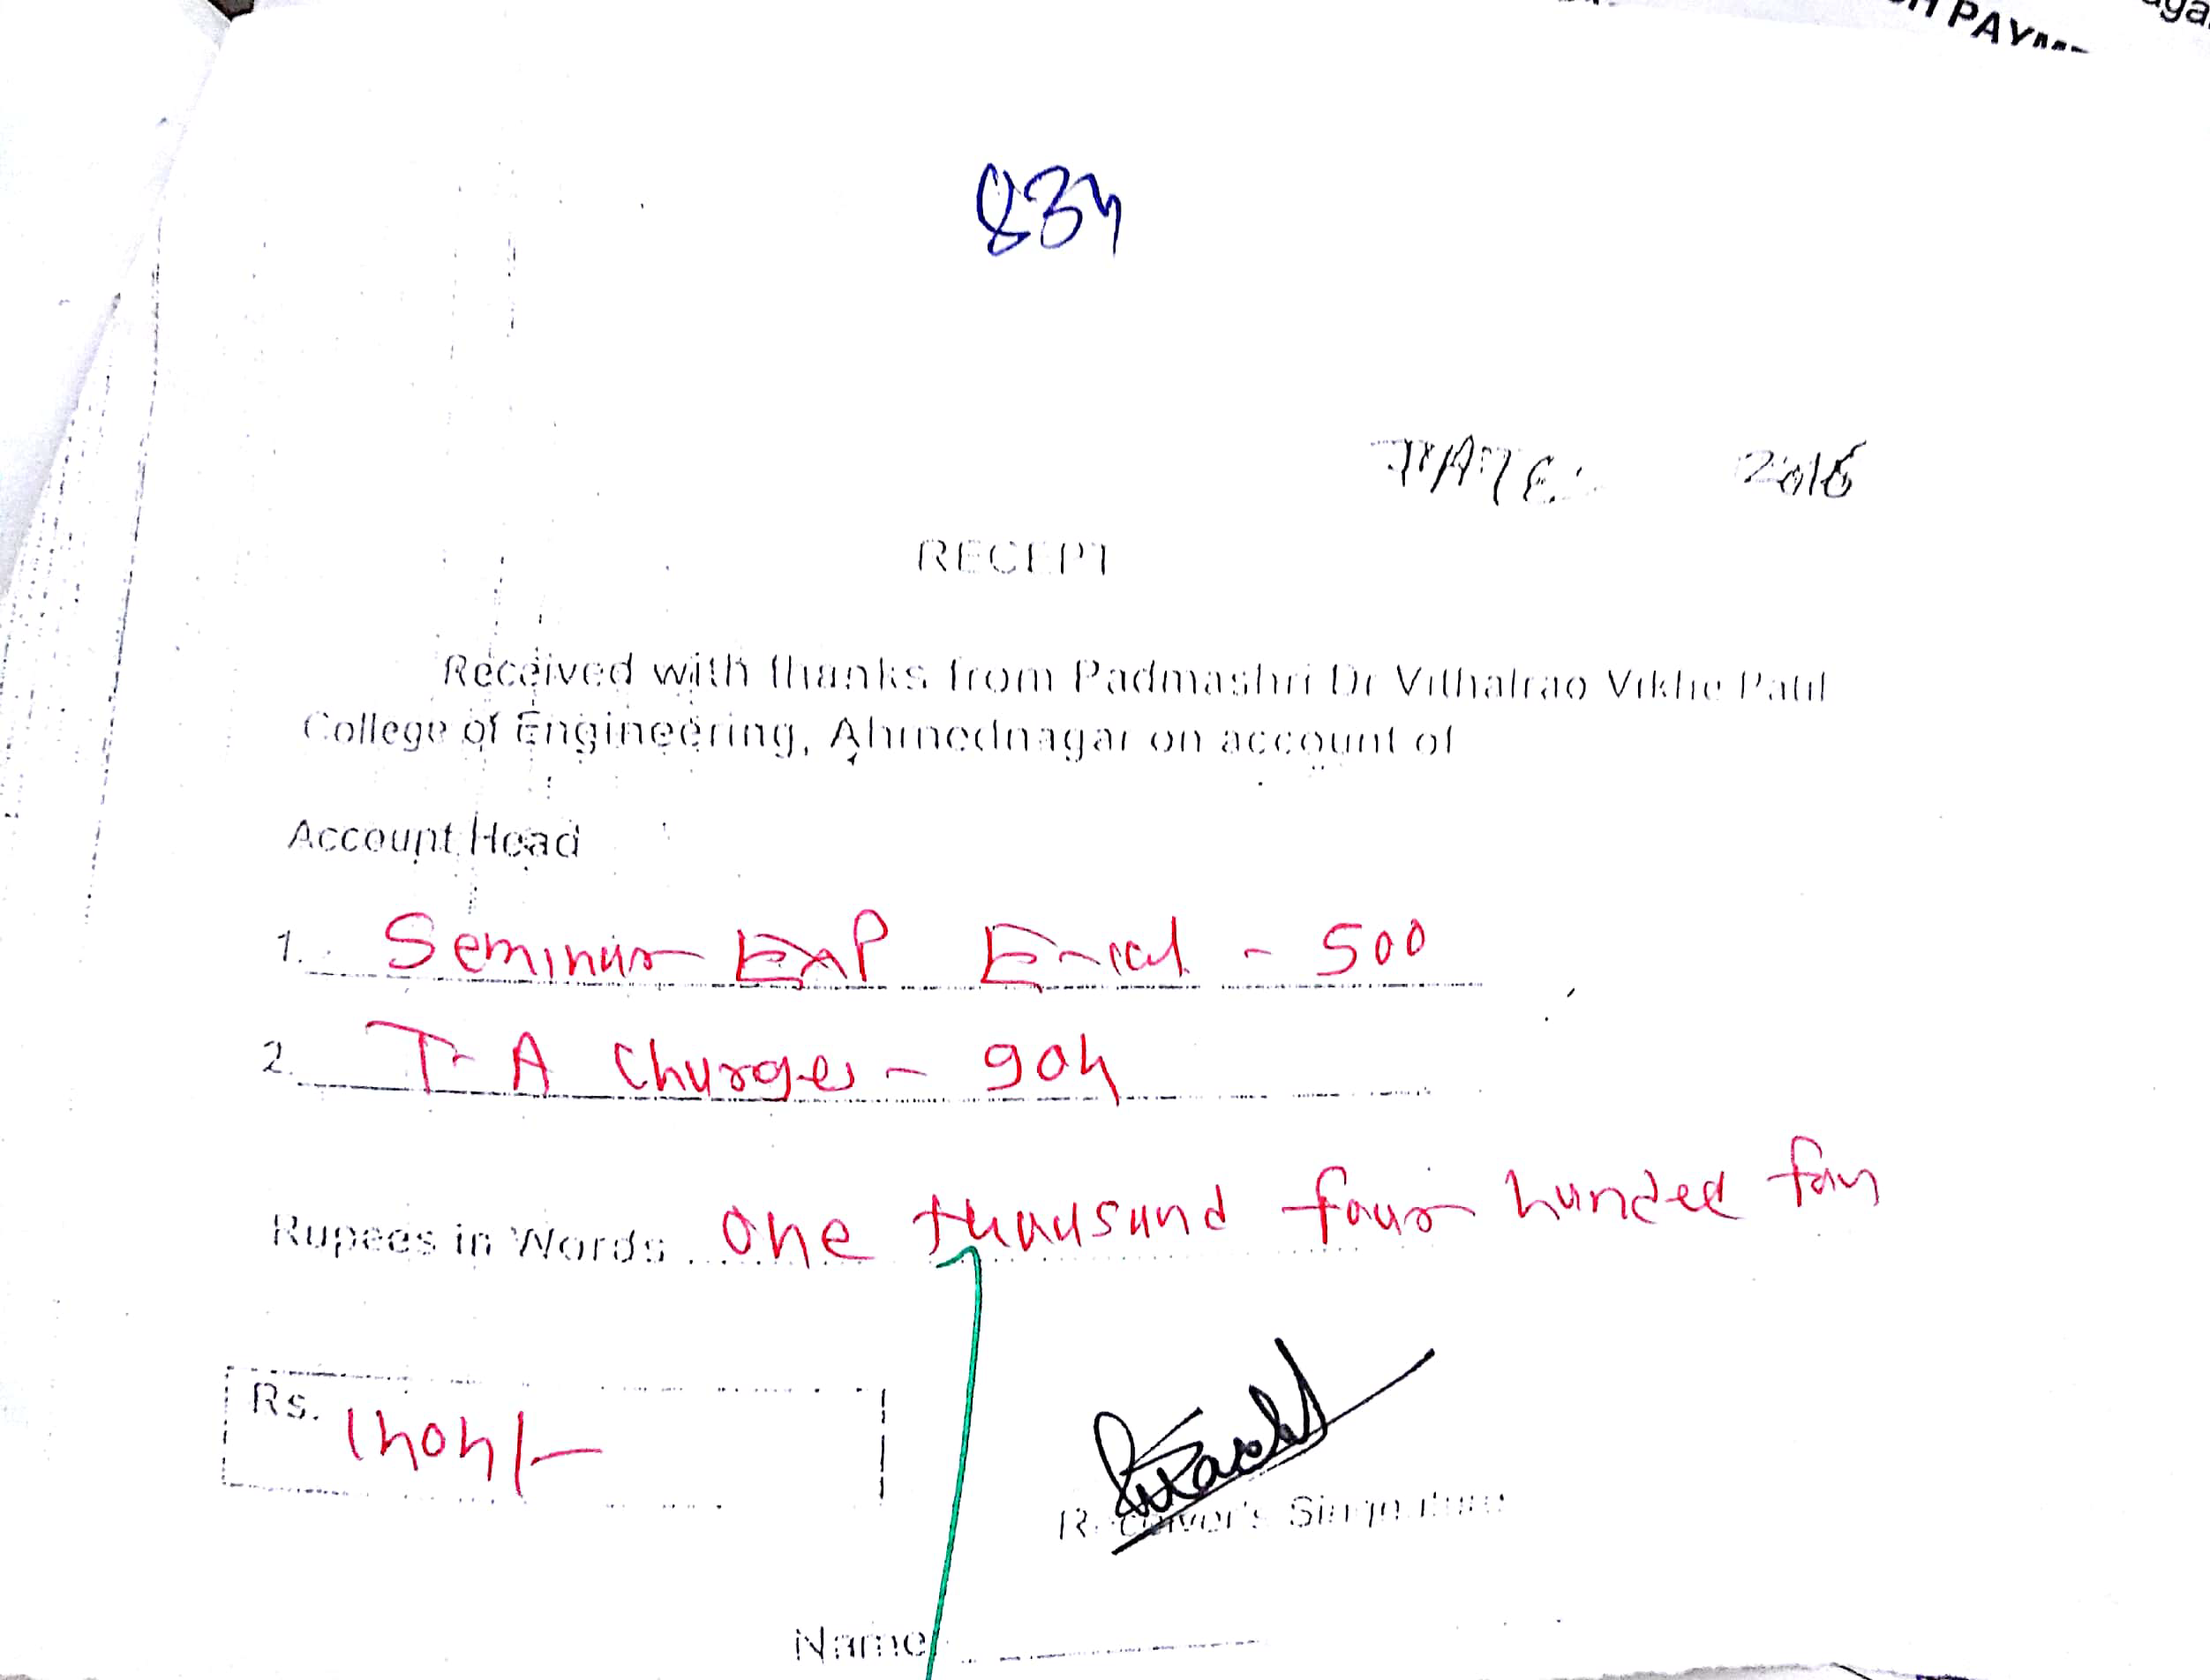 PAYM
834
DATE: 2016
RECEPT
Received with thanks from Padmashri Dr Vithalrao Vikhe Patil
College of Engineering, Ahmednagar on account of
Account Head
1. Seminar EXP E-ical - 500
2. T-A Charges - 904
Rupees in Words one thousand four hunded four
Rs. 1404/-
Receiver's Singnature
Name